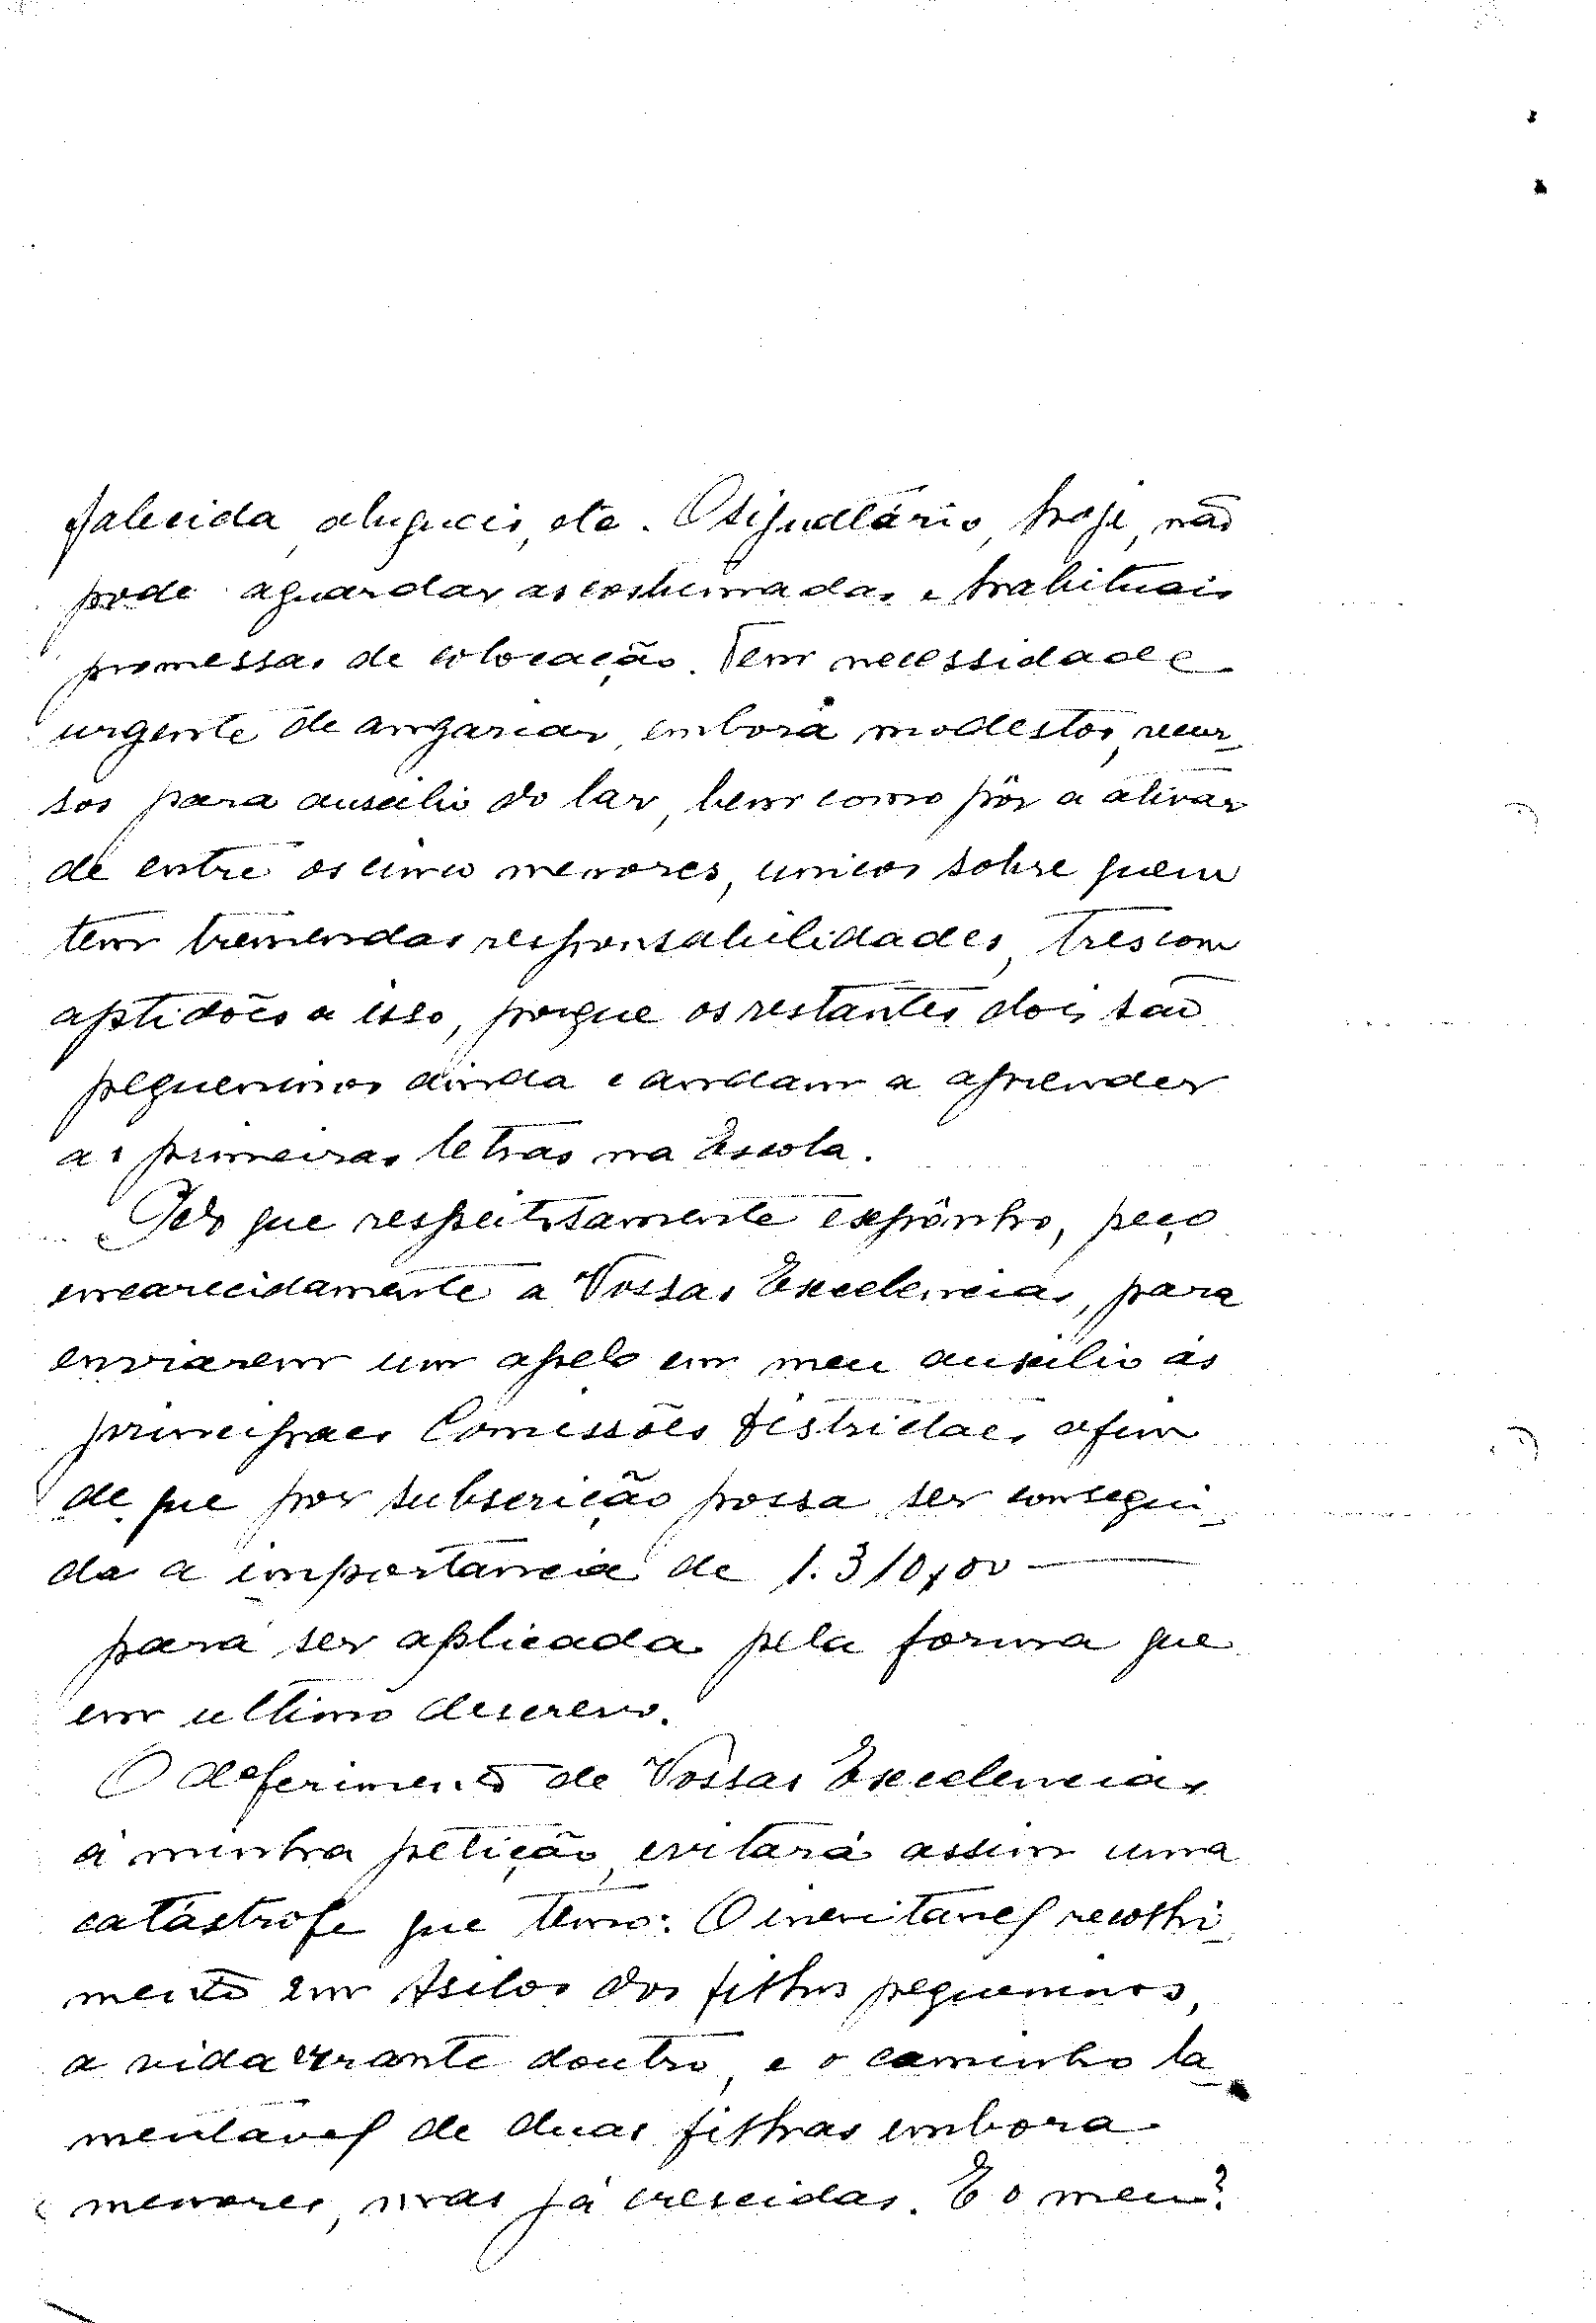 falecida, alugueis, etc. O signatário, hoje, não
pode aguardar as costumadas e habituais
promessas de colocação. Tem necessidade
urgente de angariar, embora modestos, recur-
sos para auxilio do lar, bem como pôr a ativar
de entre os cinco menores, unicos sobre quem
tem tremendas responsabilidades, tres com
aptidões a isso, porque os restantes dois são
pequeninos ainda e andam a aprender
as primeiras letras na Escola.
Pelo que respeitosamente expônho, peço
encarecidamente a Vossas Excelencias, para
enviarem um apelo em meu auxilio ás
principaes Comissões Distritaes, afim
de que por subscrição possa ser consegui-
da a importancia de 1.310,00
para ser aplicada pela forma que
em ultimo descrevo.
O deferimento de Vossas Excelencias
á minha petição, evitará assim uma
catástrofe que temo: O inevitavel recolhi-
mento em Asilos dos filhos pequeninos,
a vida errante doutro, e o caminho la-
mentavel de duas filhas embora
menores, mas já crescidas. E o meu?